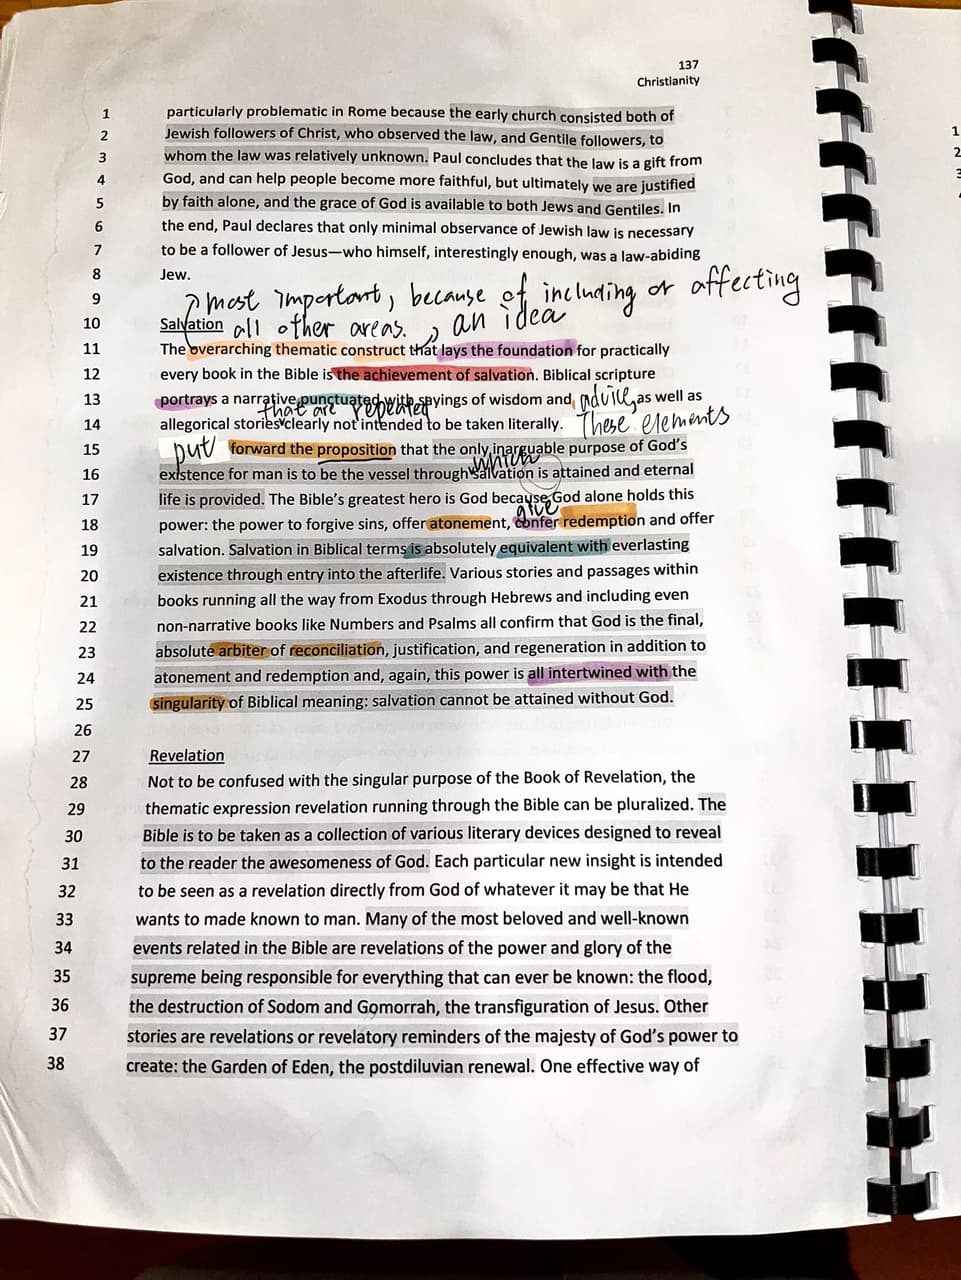 137
Christianity
1 particularly problematic in Rome because the early church consisted both of
2 Jewish followers of Christ, who observed the law, and Gentile followers, to
3 whom the law was relatively unknown. Paul concludes that the law is a gift from
4 God, and can help people become more faithful, but ultimately we are justified
5 by faith alone, and the grace of God is available to both Jews and Gentiles. In
6 the end, Paul declares that only minimal observance of Jewish law is necessary
7 to be a follower of Jesus—who himself, interestingly enough, was a law-abiding
8 Jew.
9 most important, because of including or affecting
10 Salvation all other areas. , an idea
11 The overarching thematic construct that lays the foundation for practically
12 every book in the Bible is the achievement of salvation. Biblical scripture
13 portrays a narrative punctuated with sayings of wisdom and advice, as well as
that are repeated
14 allegorical stories clearly not intended to be taken literally. These elements
15 put forward the proposition that the only inarguable purpose of God's
which
16 existence for man is to be the vessel through salvation is attained and eternal
17 life is provided. The Bible's greatest hero is God because God alone holds this
give
18 power: the power to forgive sins, offer atonement, confer redemption and offer
19 salvation. Salvation in Biblical terms is absolutely equivalent with everlasting
20 existence through entry into the afterlife. Various stories and passages within
21 books running all the way from Exodus through Hebrews and including even
22 non-narrative books like Numbers and Psalms all confirm that God is the final,
23 absolute arbiter of reconciliation, justification, and regeneration in addition to
24 atonement and redemption and, again, this power is all intertwined with the
25 singularity of Biblical meaning: salvation cannot be attained without God.
26
27 Revelation
28 Not to be confused with the singular purpose of the Book of Revelation, the
29 thematic expression revelation running through the Bible can be pluralized. The
30 Bible is to be taken as a collection of various literary devices designed to reveal
31 to the reader the awesomeness of God. Each particular new insight is intended
32 to be seen as a revelation directly from God of whatever it may be that He
33 wants to made known to man. Many of the most beloved and well-known
34 events related in the Bible are revelations of the power and glory of the
35 supreme being responsible for everything that can ever be known: the flood,
36 the destruction of Sodom and Gomorrah, the transfiguration of Jesus. Other
37 stories are revelations or revelatory reminders of the majesty of God's power to
38 create: the Garden of Eden, the postdiluvian renewal. One effective way of
1
2
3